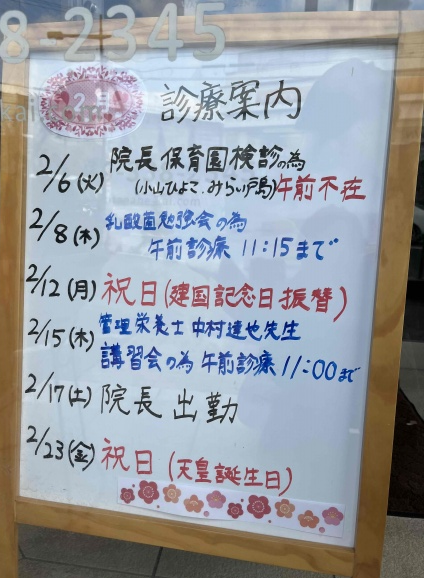 8-2345
2月
診療案内
2/6(火) 院長 保育園検診の為
(小山ひよこ、みらい戸島)午前不在
2/8(木) 乳酸菌勉強会の為
午前診療 11:15まで
2/12(月) 祝日(建国記念日 振替)
2/15(木) 管理栄養士 中村達也先生
講習会の為 午前診療 11:00まで
2/17(土) 院長 出勤
2/23(金) 祝日(天皇誕生日)